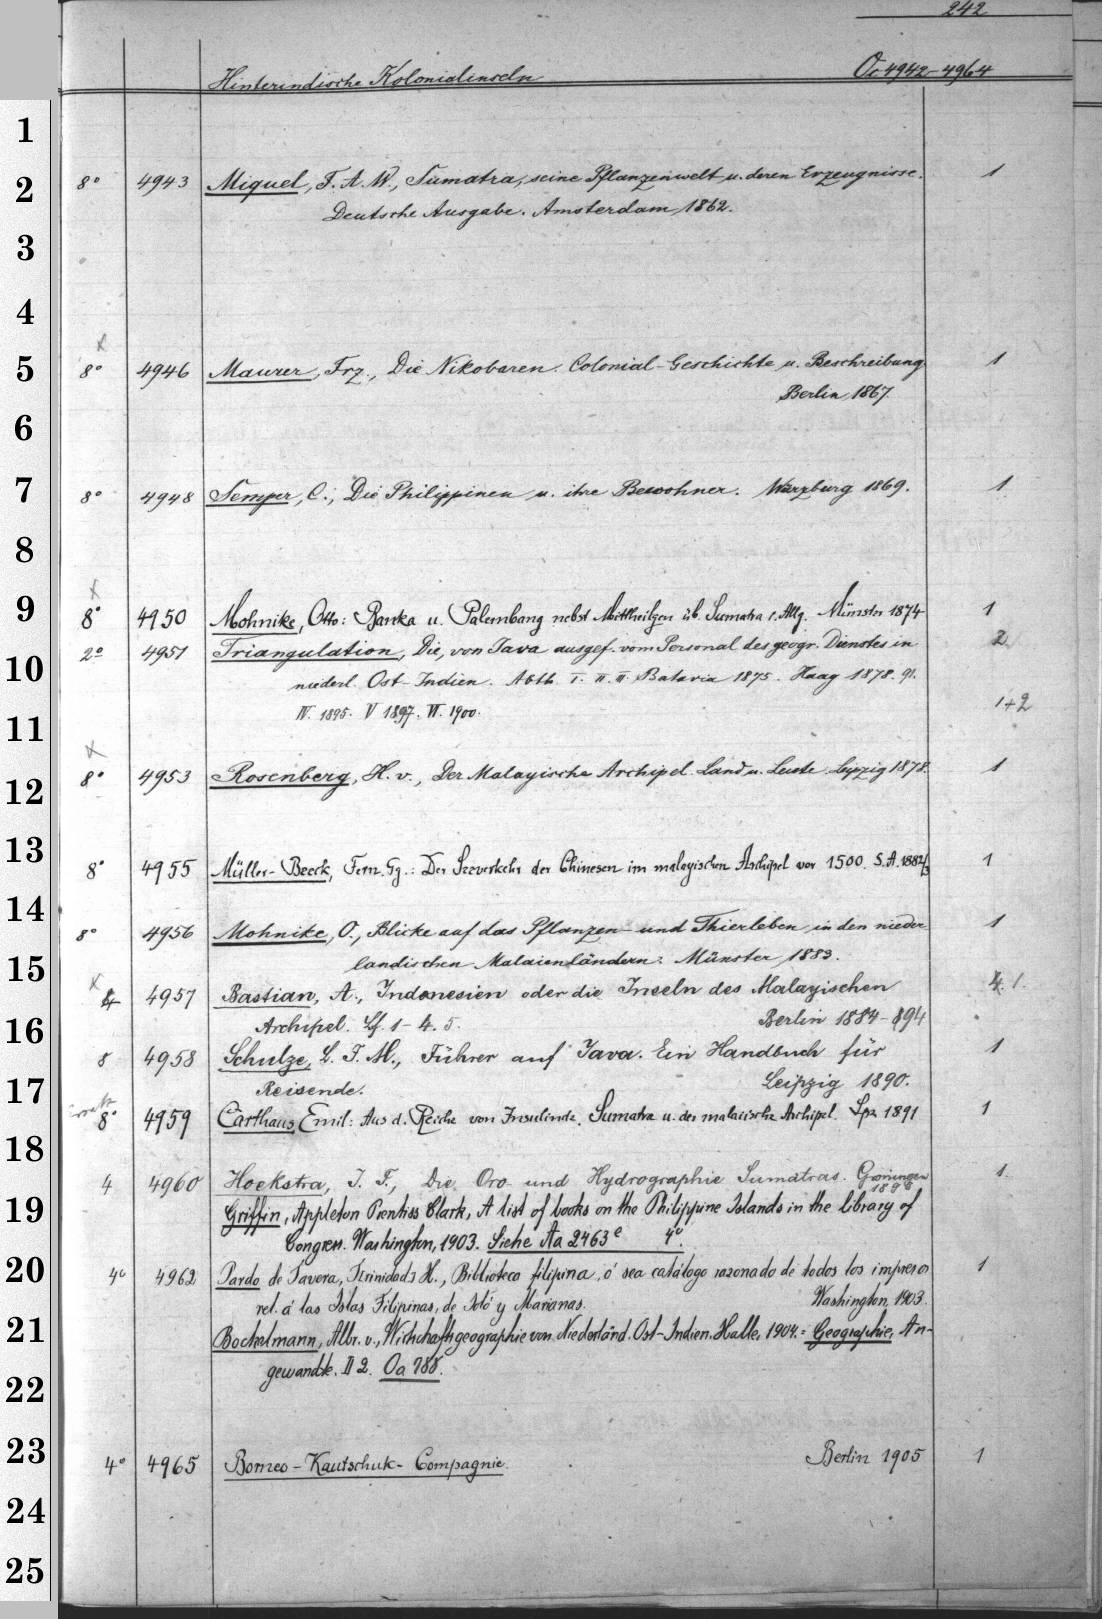 242
Hinterindische Kolonialinseln Oc 4942-4964
1
2 8° 4943 Miquel, F. A. W., Sumatra, seine Pflanzenwelt u. deren Erzeugnisse. 1
Deutsche Ausgabe. Amsterdam, 1862.
3
4
x
5 8° 4946 Maurer, Frz., Die Nikobaren. Colonial-Geschichte u. Beschreibung 1
Berlin, 1867.
6
7 8° 4948 Semper, C., Die Philippinen u. ihre Bewohner. Würzburg 1869. 1
8
x
9 8° 4950 Mohnike, Otto: Banka u. Palembang nebst Mittheilgen üb. Sumatra i. Allg. Münster 1874 1
10 2° 4951 Triangulation, Die, von Java ausgef. vom Personal des geogr. Dienstes in 2
niederl. Ost-Indien. Abth. I. II. III. Batavia 1875. Haag 1878. 91.
11 IV. 1895. V 1897. VI. 1900. 1+2
x
12 8° 4953 Rosenberg, H. v., Der Malayische Archipel. Land u. Leute. Leipzig 1878. 1
13 8° 4955 Müller-Beeck, Fern. Gg.: Der Seeverkehr der Chinesen im malayischen Archipel vor 1500. S. A. 1882/3 1
14 8° 4956 Mohnike, O., Blicke auf das Pflanzen- und Thierleben in den nieder- 1
15 landischen Malaienländern. Münster, 1883.
x
4 4957 Bastian, A., Indonesien oder die Inseln des Malayischen 4. 1.
Archipel. Lf. 1-4. 5. Berlin 1884-894
16 8 4958 Schulze, L. F. M., Führer auf Java. Ein Handbuch für 1
17 Reisende. Leipzig 1890.
8° 4959 Carthaus, Emil: Aus d. Reiche von Insulinde, Sumatra u. der malaiische Archipel. Lpz. 1891 1
18
4 4960 Hoekstra, J. F., Die Oro- und Hydrographie Sumatras. Groningen 1
19 Griffin, Appleton Prentiss Clark, A list of books on the Philippine Islands in the library of
Congress. Washington, 1903. Siehe Aa 2463e 4°.
20 4° 4962 Pardo de Tavera, Trinidad H., Biblioteca filipina, ó sea catálogo razonado de todos los impresos 1
rel. á las Islas Filipinas, de Joló y Marianas. Washington, 1903.
21 Bockelmann, Albr. v., Wirthschaftsgeographie von Niederländ. Ost-Indien. Halle, 1904. = Geographie, An-
22 gewandte. II 2. Oa 788.
23 4° 4965 Borneo-Kautschuk-Compagnie. Berlin 1905 1
24
25